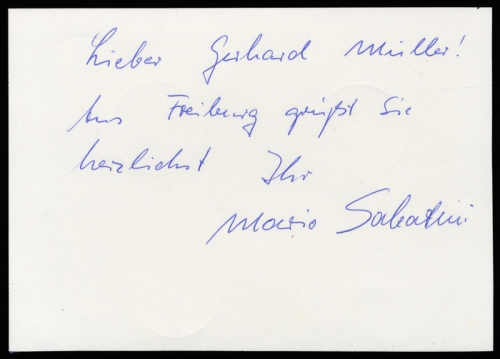 Lieber Gerhard Müller!
Aus Freiburg grüßt Sie
herzlichst Ihr
Mario Sabatini